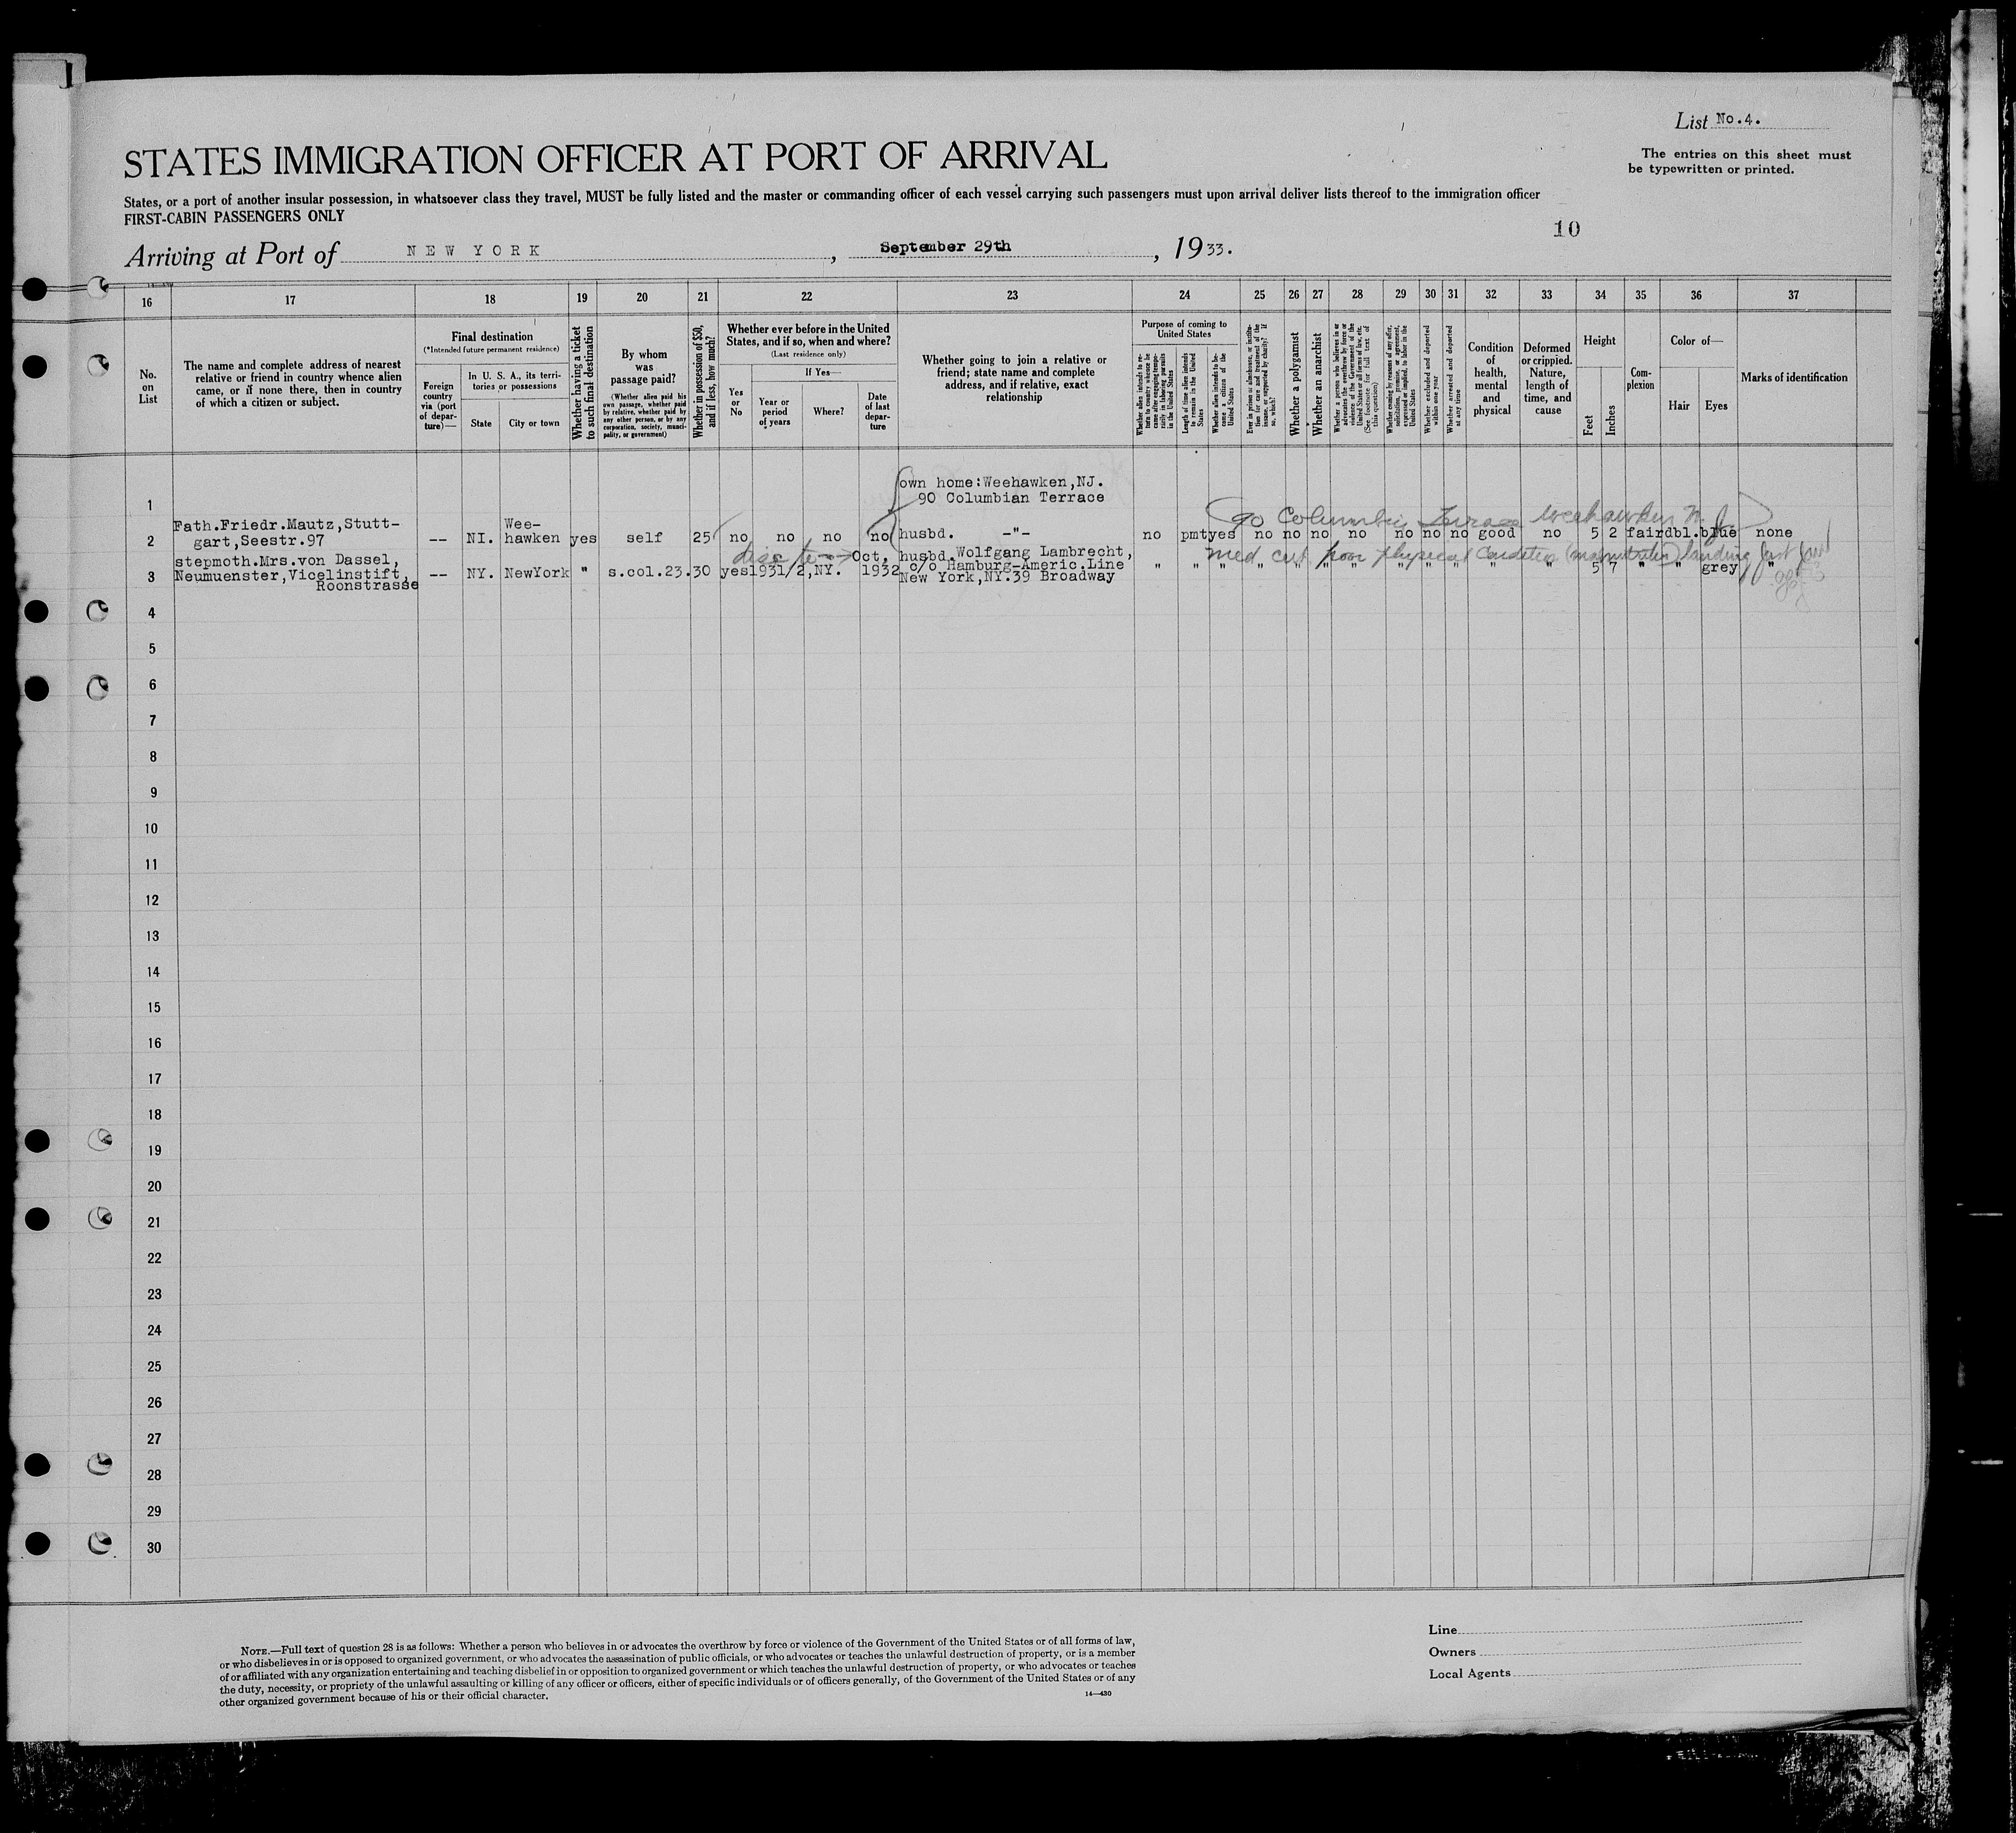 List No.4.
STATES IMMIGRATION OFFICER AT PORT OF ARRIVAL
The entries on this sheet must
be typewritten or printed.
States, or a port of another insular possession, in whatsoever class they travel, MUST be fully listed and the master or commanding officer of each vessel carrying such passengers must upon arrival deliver lists thereof to the immigration officer
FIRST-CABIN PASSENGERS ONLY
10
Arriving at Port of NEW YORK, September 29th, 1933.
16 17 18 19 20 21 22 23 24 25 26 27 28 29 30 31 32 33 34 35 36 37
No.
on
List
The name and complete address of nearest
relative or friend in country whence alien
came, or if none there, then in country
of which a citizen or subject.
Final destination
(*Intended future permanent residence)
Foreign
country
via (port
of depar-
ture)—
In U. S. A., its terri-
tories or possessions
State
City or town
Whether having a ticket
to such final destination
By whom
was
passage paid?
(Whether alien paid his
own passage, whether paid
by relative, whether paid by
any other person, or by any
corporation, society, munici-
pality, or government)
Whether in possession of $50,
and if less, how much?
Whether ever before in the United
States, and if so, when and where?
(Last residence only)
Yes
or
No
If Yes—
Year or
period
of years
Where?
Date
of last
depar-
ture
Whether going to join a relative or
friend; state name and complete
address, and if relative, exact
relationship
Purpose of coming to
United States
Whether alien intends to re-
turn to country whence he
came after engaging tempo-
rarily in laboring pursuits
in the United States
Length of time alien intends
to remain in the United
States
Whether alien intends to be-
come a citizen of the
United States
Ever in prison or almshouse, or institu-
tion for care and treatment of the
insane, or supported by charity? If
so, which?
Whether a polygamist
Whether an anarchist
Whether a person who believes in or
advocates the overthrow by force or
violence of the Government of the
United States or all forms of law, etc.
(See footnote for full text of
this question)
Whether coming by reasons of any offer,
solicitation, promise, or agreement,
expressed or implied, to labor in the
United States
Whether excluded and deported
within one year
Whether arrested and deported
at any time
Condition
of
health,
mental
and
physical
Deformed
or crippled.
Nature,
length of
time, and
cause
Height
Feet
Inches
Com-
plexion
Color of—
Hair
Eyes
Marks of identification
own home:Weehawken,NJ.
1 90 Columbian Terrace
90 Columbia Terrace Weehawken N.J.
Fath.Friedr.Mautz,Stutt- Wee-
2 gart,Seestr.97 -- NI. hawken yes self 25 no no no no husbd. -"- no pmt yes no no no no no no no good no 5 2 fair dbl. blue none
stepmoth.Mrs.von Dassel, Oct, husbd.Wolfgang Lambrecht, med cert poor physical condition
3 Neumuenster,Vicelinstift, -- NY. NewYork " s.col.23. 30 yes 1931/2,NY. 1932 c/o Hamburg-Americ.Line " " " " " " " " " " " " 5 7 " " grey "
Roonstrasse New York,NY.39 Broadway
4
5
6
7
8
9
10
11
12
13
14
15
16
17
18
19
20
21
22
23
24
25
26
27
28
29
30
NOTE.—Full text of question 28 is as follows: Whether a person who believes in or advocates the overthrow by force or violence of the Government of the United States or of all forms of law,
or who disbelieves in or is opposed to organized government, or who advocates the assassination of public officials, or who advocates or teaches the unlawful destruction of property, or is a member
of or affiliated with any organization entertaining and teaching disbelief in or opposition to organized government or which teaches the unlawful destruction of property, or who advocates or teaches
the duty, necessity, or propriety of the unlawful assaulting or killing of any officer or officers, either of specific individuals or of officers generally, of the Government of the United States or of any
other organized government because of his or their official character.
14—430
Line
Owners
Local Agents